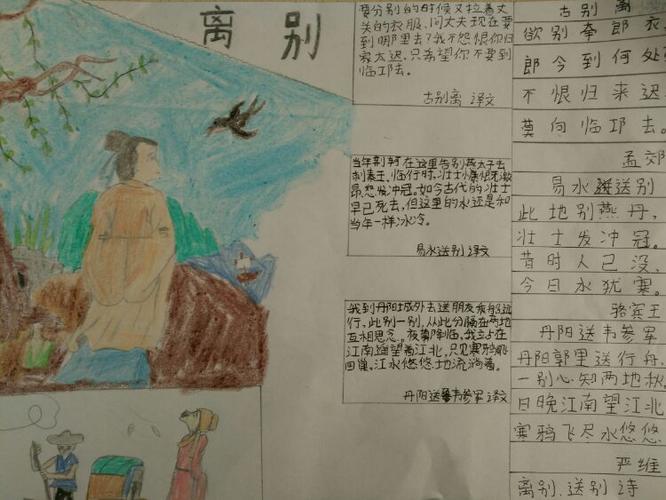 离别
要分别的时候又拉着丈
夫的衣服,问丈夫现在要
到哪里去?我不怨恨你归
家太迟,只希望你不要到
临邛去。
古别离 译文
当年荆轲在这里告别燕太子去
刺秦王,临行时,壮士慷慨激
昂怒发冲冠。如今古代的壮士
早已死去,但这里的水还是和
当年一样冰冷。
易水送别 译文
我到丹阳城外去送朋友
行,此别一别,从此分隔在两地
互相思念。夜幕降临,我立在
江南遥望着江北,只见寒鸦
回巢,江水悠悠地流淌着。
丹阳送韦参军 译文
古别离
欲别牵郎衣
郎今到何处
不恨归来迟
莫向临邛去。
孟郊
易水送别
此地别燕丹,
壮士发冲冠。
昔时人已没,
今日水犹寒。
骆宾王
丹阳送韦参军
丹阳郭里送行舟
一别心知两地秋
日晚江南望江北
寒鸦飞尽水悠悠
严维
离别、送别诗